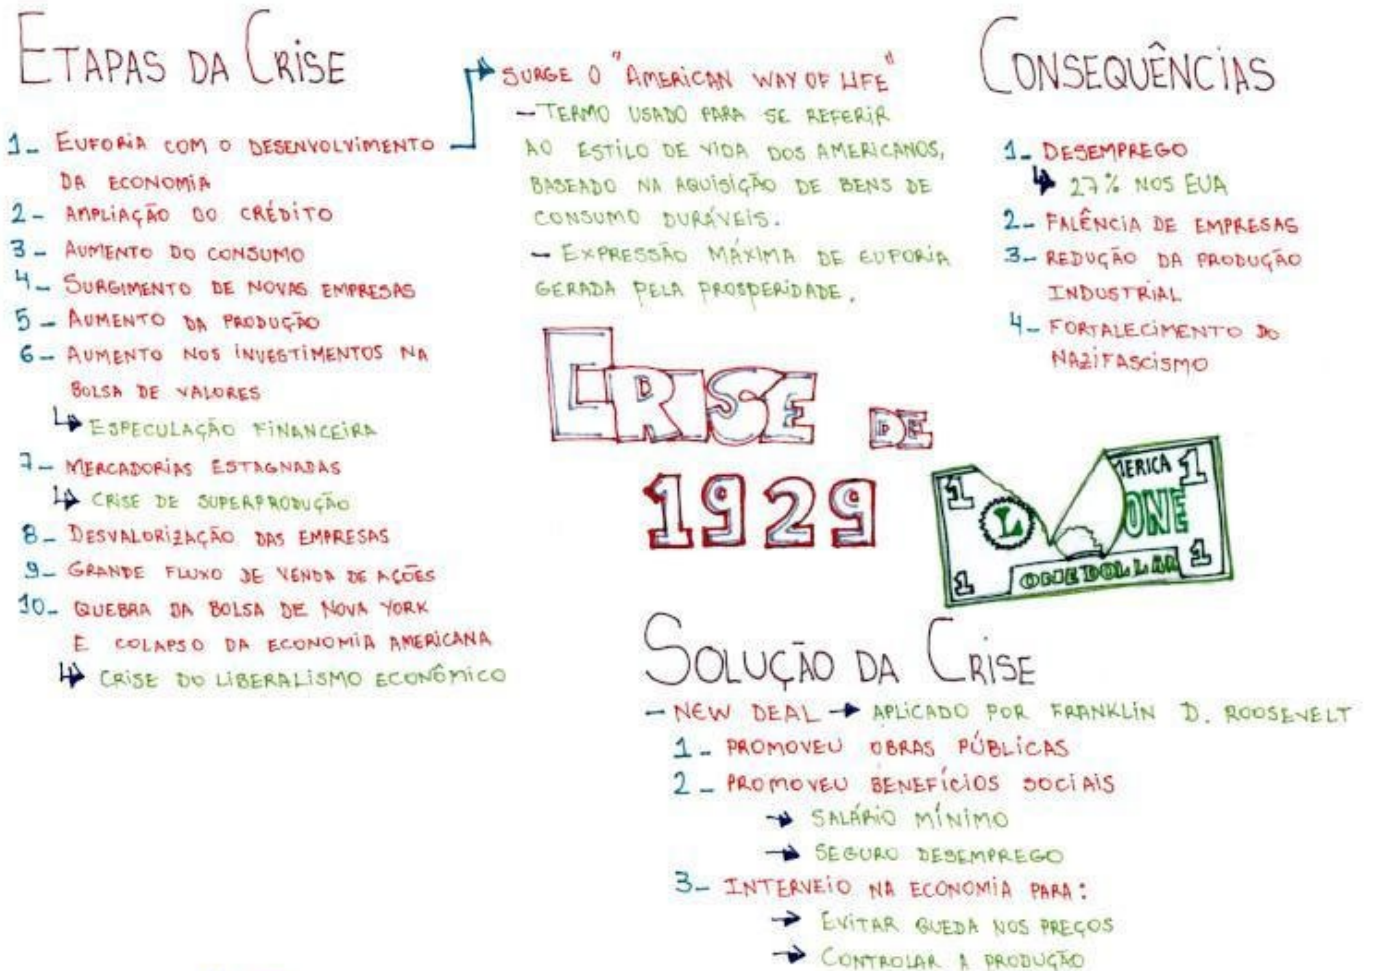 ETAPAS DA CRISE
1- EUFORIA COM O DESENVOLVIMENTO
DA ECONOMIA
2- AMPLIAÇÃO DO CRÉDITO
3- AUMENTO DO CONSUMO
4- SURGIMENTO DE NOVAS EMPRESAS
5- AUMENTO DA PRODUÇÃO
6- AUMENTO NOS INVESTIMENTOS NA
BOLSA DE VALORES
ESPECULAÇÃO FINANCEIRA
7- MERCADORIAS ESTAGNADAS
CRISE DE SUPERPRODUÇÃO
8- DESVALORIZAÇÃO DAS EMPRESAS
9- GRANDE FLUXO DE VENDA DE AÇÕES
10- QUEBRA DA BOLSA DE NOVA YORK
E COLAPSO DA ECONOMIA AMERICANA
CRISE DO LIBERALISMO ECONÔMICO
SURGE O "AMERICAN WAY OF LIFE"
- TERMO USADO PARA SE REFERIR
AO ESTILO DE VIDA DOS AMERICANOS,
BASEADO NA AQUISIÇÃO DE BENS DE
CONSUMO DURÁVEIS.
- EXPRESSÃO MÁXIMA DE EUFORIA
GERADA PELA PROSPERIDADE.
CRISE DE
1929
CONSEQUÊNCIAS
1- DESEMPREGO
27% NOS EUA
2- FALÊNCIA DE EMPRESAS
3- REDUÇÃO DA PRODUÇÃO
INDUSTRIAL
4- FORTALECIMENTO DO
NAZIFASCISMO
1 MERICA 1
L ONE
1 ONE DOLLAR 1
SOLUÇÃO DA CRISE
- NEW DEAL → APLICADO POR FRANKLIN D. ROOSEVELT
1- PROMOVEU OBRAS PÚBLICAS
2- PROMOVEU BENEFÍCIOS SOCIAIS
→ SALÁRIO MÍNIMO
→ SEGURO DESEMPREGO
3- INTERVEIO NA ECONOMIA PARA:
→ EVITAR QUEDA NOS PREÇOS
→ CONTROLAR A PRODUÇÃO